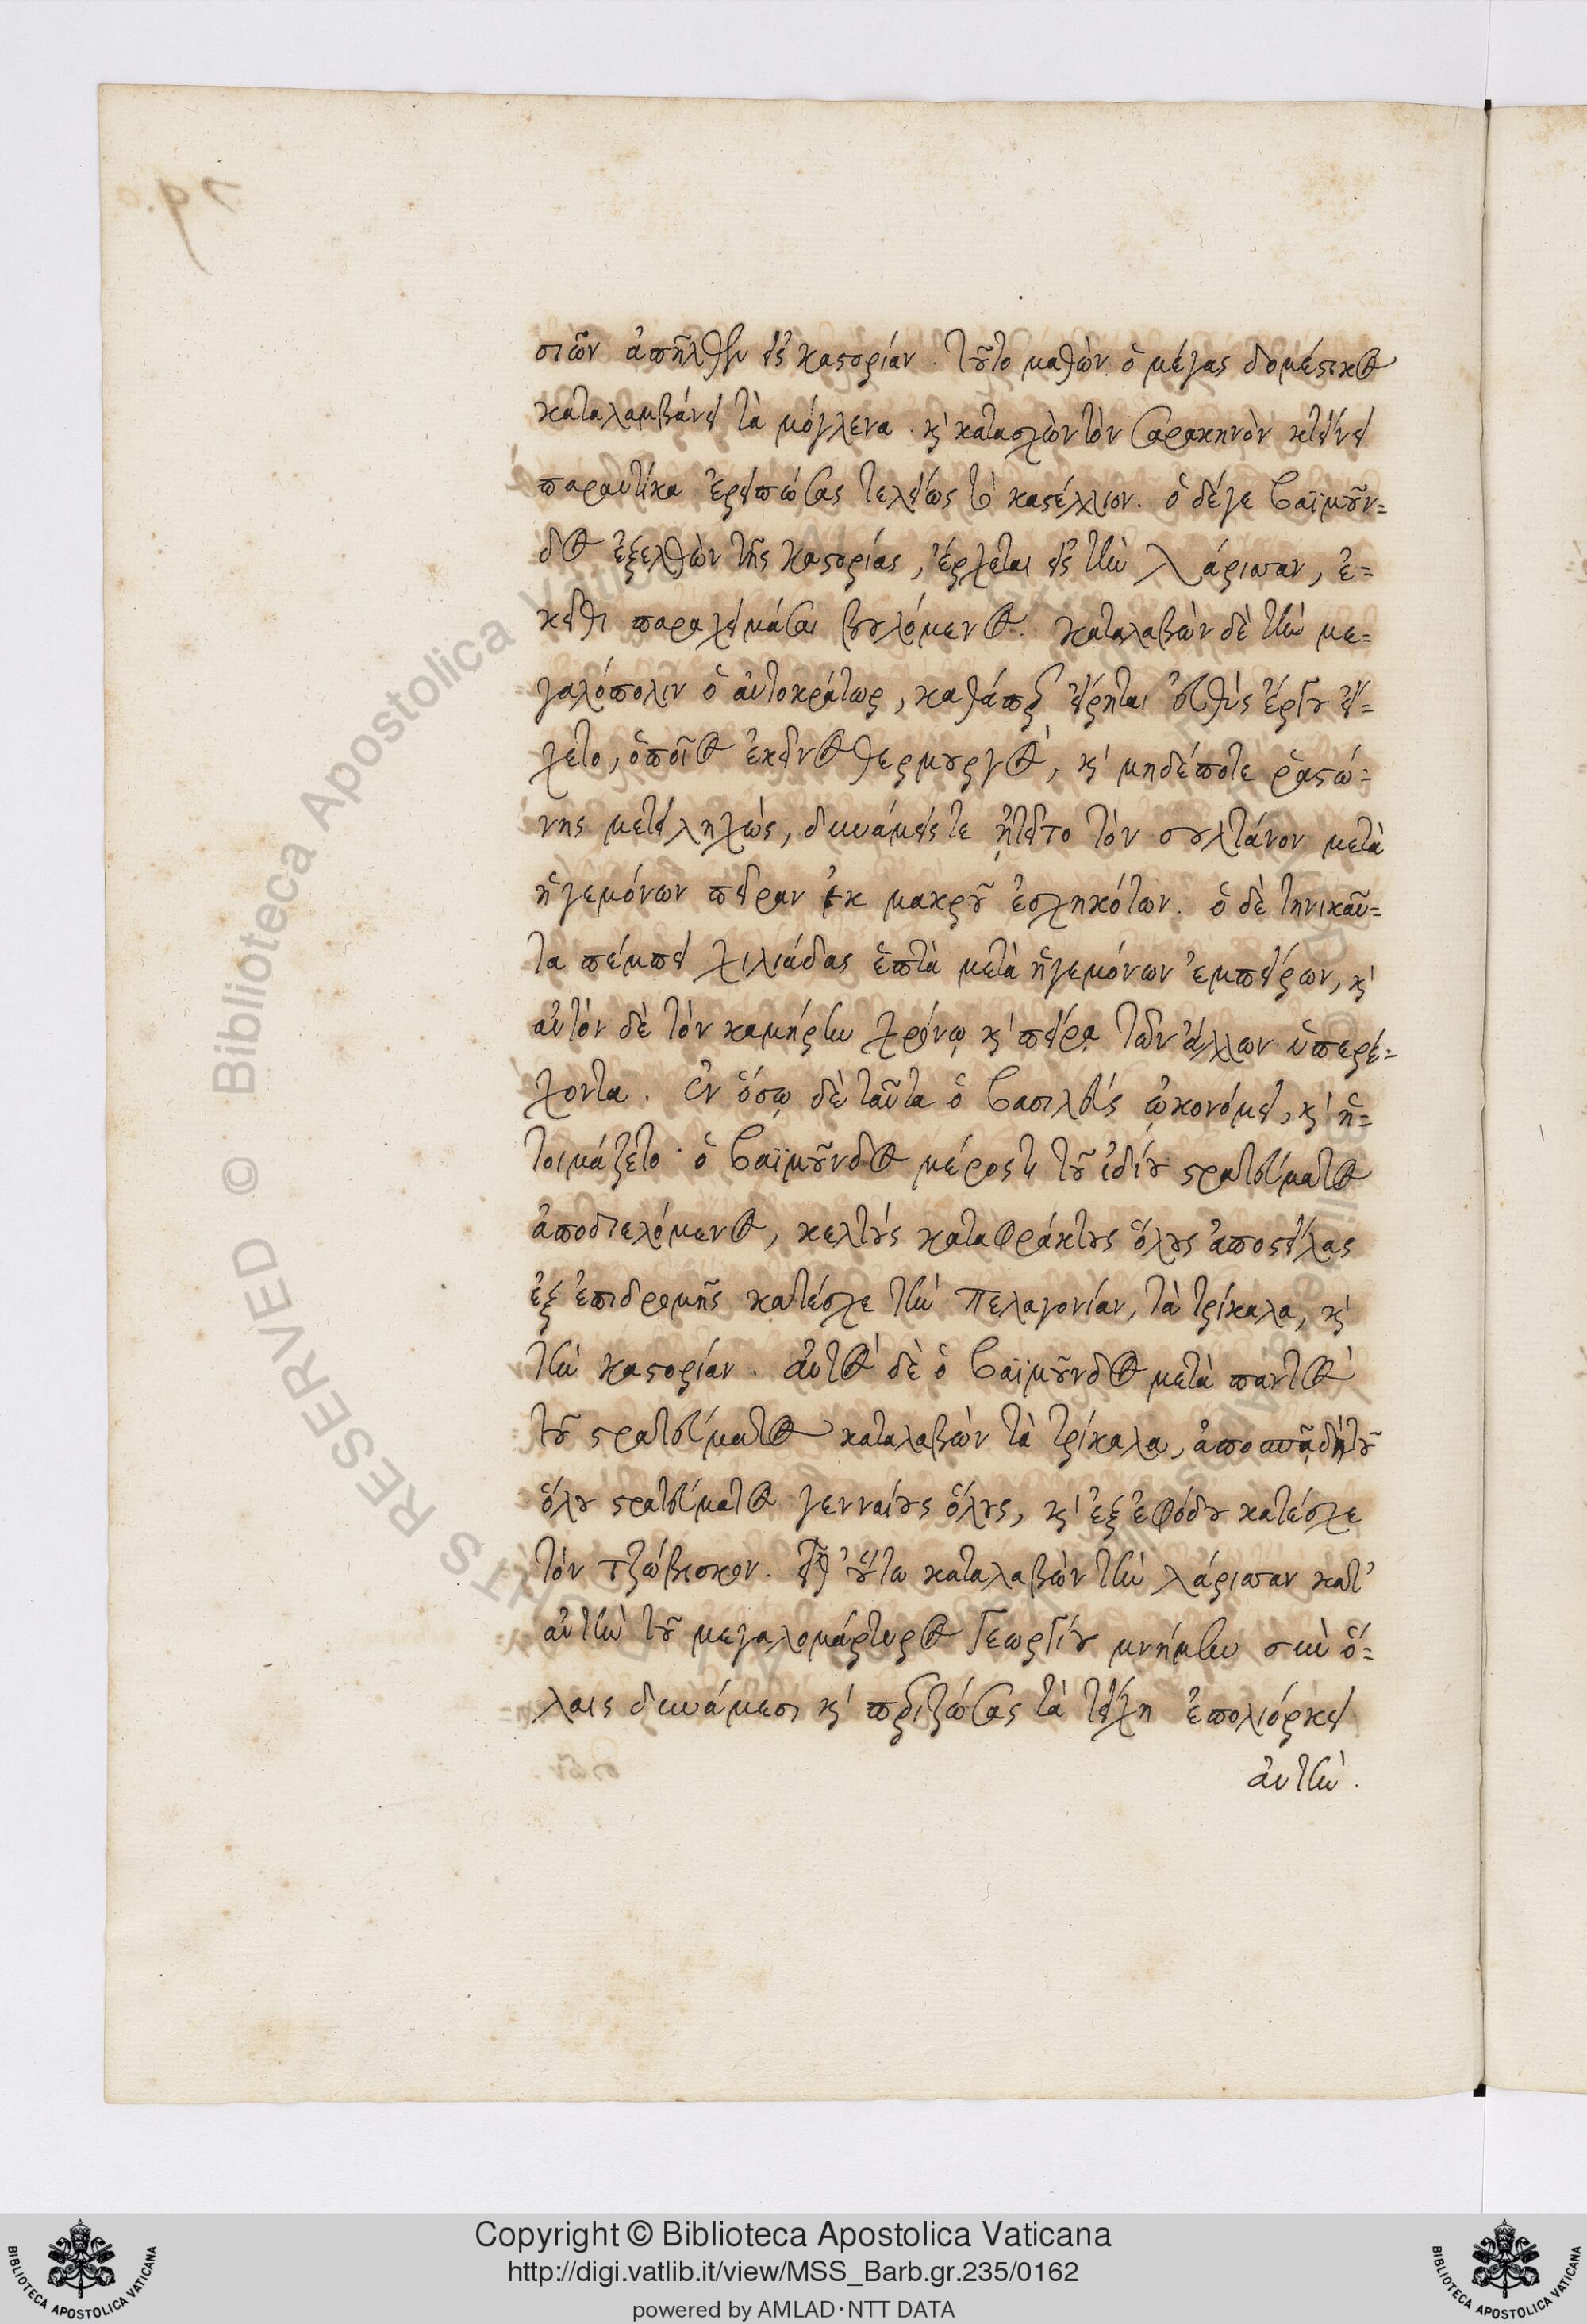 σιῶν ἀπῆλθεν εἰς καστορίαν. τοῦτο μαθὼν ὁ μέγας δομέστικος
καταλαμβάνει τὰ μόγλενα. κ' κατασχὼν τὸν σαρακηνὸν κτείνει
παραυτίκα ἐρειπώσας τελείως τὸ καστέλλιον. ὁ δέγε βαϊμοῦν=
δος ἐξελθὼν τῆς καστορίας, ἔρχεται εἰς τὴν λάρισσαν, ἐ=
κεῖθι παραχειμάσαι βουλόμενος. καταλαβὼν δὲ τὴν με=
γαλόπολιν ὁ αὐτοκράτωρ, καθάπερ εἴρηται εὐθὺς ἔργου εἴ=
χετο, ὁποῖος ἐκεῖνος θερμουργὸς, κ' μηδέποτε ῥαστώ=
νης μετειληχὼς, δυνάμεις τε ᾐτεῖτο τὸν σουλτάνον μετὰ
ἡγεμόνων πεῖραν ἐκ μακροῦ ἐσχηκότων. ὁ δὲ τηνικαῦ=
τα πέμπει χιλιάδας ἑπτὰ μετὰ ἡγεμόνων ἐμπείρων, κ'
αὐτὸν δὲ τὸν καμήρην χρόνῳ κ' πείρᾳ τῶν ἄλλων ὑπερέ=
χοντα. ἐν ὅσῳ δὲ ταῦτα ὁ βασιλεὺς ᾠκονόμει, κ' ἡ=
τοιμάζετο· ὁ βαϊμοῦνδος μέρος τι τοῦ ἰδίου στρατεύματος
ἀποδιελόμενος, κελτοὺς καταφράκτους ὅλους ἀποστείλας
ἐξ ἐπιδρομῆς κατέσχε τὴν πελαγονίαν, τὰ τρίκαλα, κ'
τὴν καστορίαν. αὐτὸς δὲ ὁ βαϊμοῦνδος μετὰ παντὸς
τοῦ στρατεύματος καταλαβὼν τὰ τρίκαλα, ἀποσπᾷ δὴ τοῦ
ὅλου στρατεύματος γενναίους ὅλους, κ' ἐξ ἐφόδου κατέσχε
τὸν τζίβισκον. εἶθ' οὕτω καταλαβὼν τὴν λάρισσαν κατ'
αὐτὴν τοῦ μεγαλομάρτυρος Γεωργίου μνήμην σὺν ὅ=
λαις δυνάμεσι κ' περιζώσας τὰ τείχη ἐπολιόρκει
αὐτήν.
Copyright © Biblioteca Apostolica Vaticana
http://digi.vatlib.it/view/MSS_Barb.gr.235/0162
powered by AMLAD·NTT DATA
BIBLIOTECA APOSTOLICA VATICANA
BIBLIOTECA APOSTOLICA VATICANA